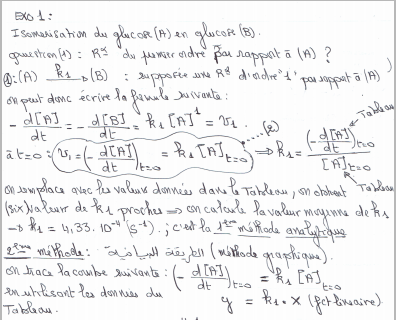 EXO 1:
Isomerisation du glucose (A) en glucose (B).
question (1): R° du premier ordre par rapport à (A) ?
①: (A) —k₁→ (B) : supposée une R° d'ordre '1' par rapport à (A)
on peut donc écrire la formule suivante:
- d[A]/dt = - d[B]/dt = k₁[A]¹ = v₁ (2) Tableau
à t=0: v₁ = (- d[A]/dt)t=0 = k₁[A]t=0 ⟹ k₁ = (- d[A]/dt)t=0 / [A]t=0
Tableau
on remplace avec les valeurs données dans le Tableau, on obtient
(six) valeurs de k1 proches ⟹ on calcule la valeur moyenne de k1
→ k1 = 4,33. 10⁻⁴ (s⁻¹). ; c'est la 1ère méthode analytique
2ème méthode: الطريقة البيانية (méthode graphique).
on trace la courbe suivante: (- d[A]/dt)t=0 = k₁[A]t=0
en utilisant les données du y = k₁ · x (fct linéaire).
Tableau.